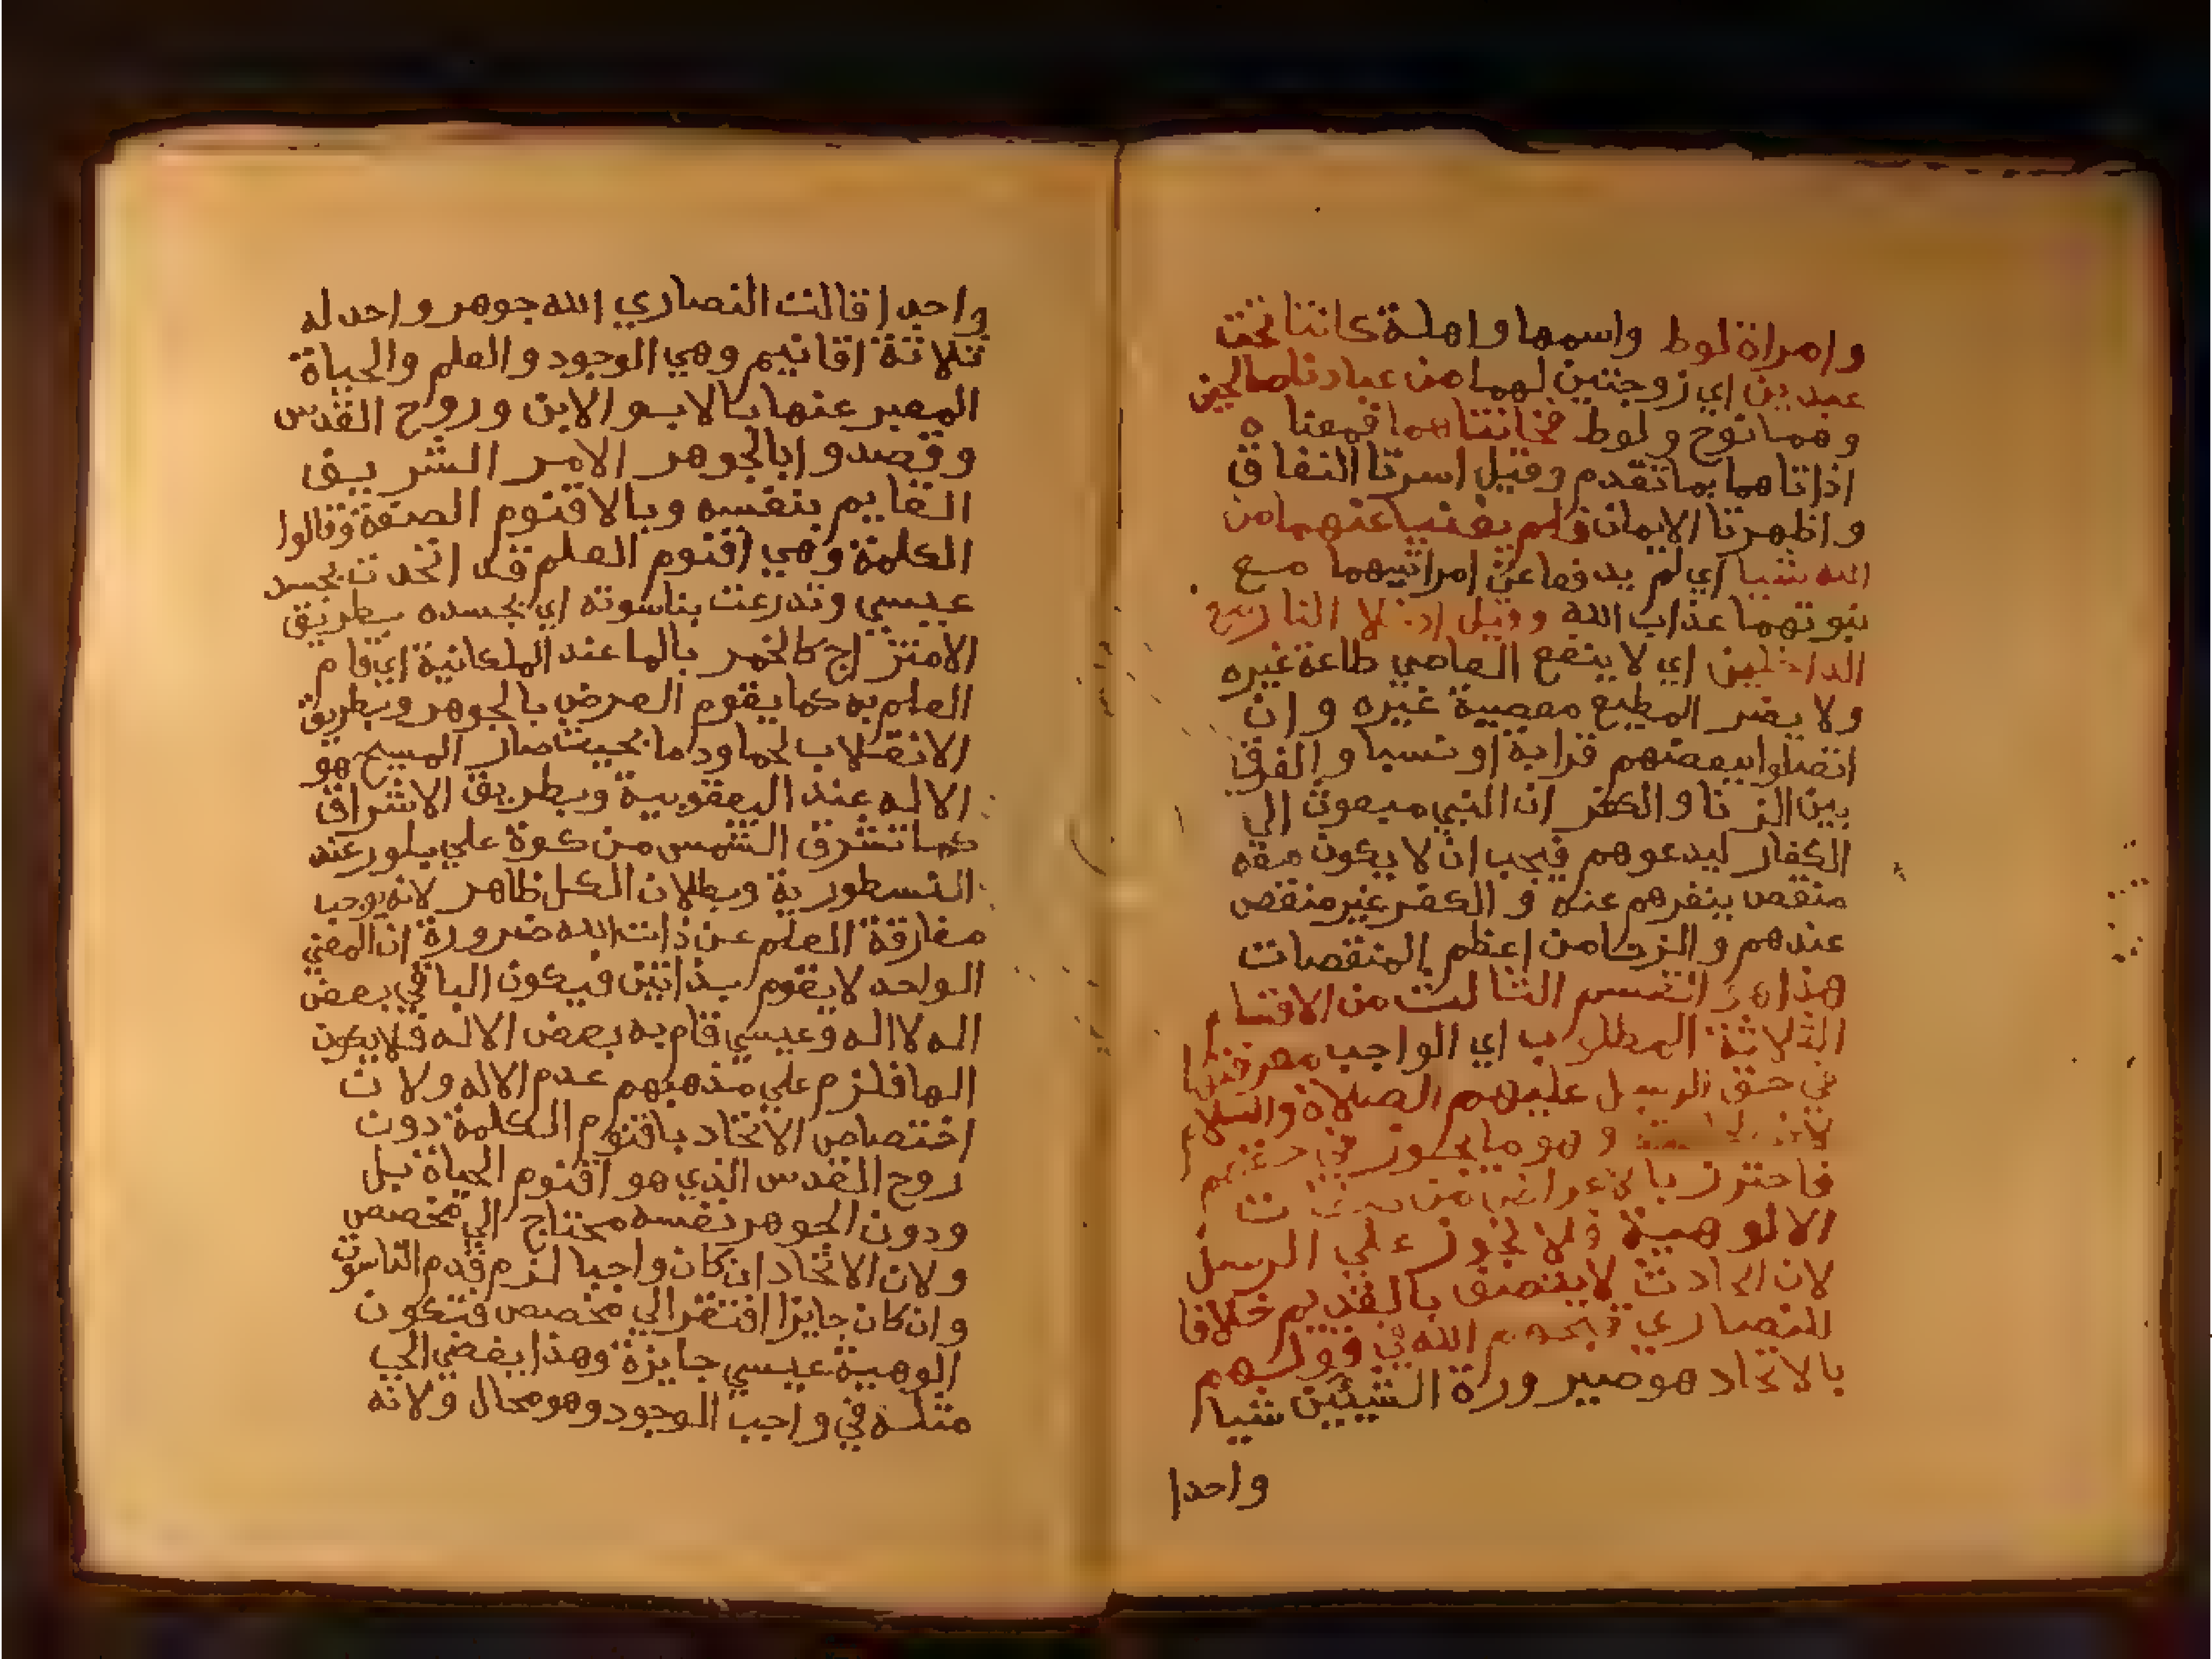 وامراة لوط واسمها واهلة كانتا تحت
عبدين اي زوجتين لهما من عبادنا صالحين
وهما نوح ولوط فخانتاهما فمعنا ه
اذاتاهما بما تقدم وقيل اسرتا النفاق
واظهرتا الايمان فلم يغنيا عنهما من
الله شيا اي لم يدفعا عن امراتيهما مع
نبوتهما عذاب الله وقيل ادخلا النار مع
الداخلين اي لا ينفع العاصي طاعة غيره
ولا يضر المطيع معصية غيره وان
اتصلوا ببعضهم قرابة او نسبا والفرق
بين الزنا والكفر ان النبي مبعوث الي
الكفار ليدعوهم فيجب ان لا يكون معه
منقص ينفرهم عنه و الكفر غير منقص
عندهم والزنا من اعظم المنقصات
هذا هو القسم الثالث من الاقسا
الثلاثة المطلوب اي الواجب معرفتها
في حق الرسل عليهم الصلاة والسلام
وهو ما يجوز في حقهم
فاحترز بالاعراض من صفات
الالوهية فلا تجوز علي الرسل
لان الحادث لا يتصف بالقديم خلافا
للنصاري قبحهم الله في قولهم
بالاتحاد هو صيرورة الشيئين شيا
واحدا
واحدا قالت النصاري الله جوهر واحد له
ثلاثة اقانيم وهي الوجود والعلم والحياة
المعبر عنها بالاب والابن وروح القدس
وقصدوا بالجوهر الامر الشريف
القايم بنفسه وبالاقنوم الصفة وقالوا
الكلمة وهي اقنوم العلم قد اتحدت بجسد
عيسي وتدرعت بناسوته اي بجسده بطريق
الامتزاج كالخمر بالما عند الملكانية اي قام
العلم به كما يقوم العرض بالجوهر وبطريق
الانقلاب لحما ودما بحيث صار المسيح هو
الاله عند اليعقوبية وبطريق الاشراق
كما تشرق الشمس من كوة علي بلور عند
النسطورية وبطلان الكل ظاهر لانه يوجب
مفارقة العلم عن ذات الله ضرورة ان المعني
الواحد لا يقوم بذاتين فيكون الباقي بعض
اله لا اله وعيسي قام به بعض الاله فلا يكون
الها فلزم علي مذهبهم عدم الاله ولان
اختصاص الاتحاد باقنوم الكلمة دون
روح القدس الذي هو اقنوم الحياة بل
ودون الجوهر نفسه محتاج الي مخصص
ولان الاتحاد ان كان واجبا لزم قدم الناسوت
وان كان جايزا افتقر الي مخصص فتكون
الوهية عيسي جايزة وهذا يفضي الي
مثله في واجب الوجود وهو محال ولانه